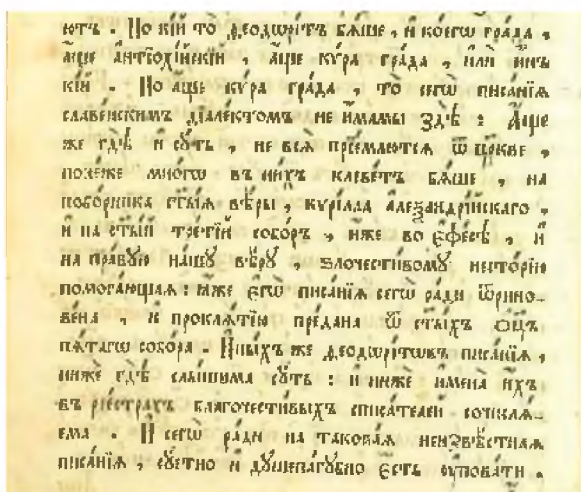 ютъ . Но кїй то Ѳеодѡритъ бѧше , и коегѡ града ,
аще антїохїйскїй , аще кѵра града , или инъ
кїй . Но аще кѵра града , то сегѡ писанїѧ
славенскимъ дїалектомъ не имамы здѣ : Аще
же гдѣ и сꙋть , не всѧ прїемлютсѧ ѿ цркве ,
понеже многѡ въ нихъ клеветъ бѧше , на
поборника ст҃ыѧ вѣры , кѵрїлла алеѯандрїйскаго ,
и на ст҃ый третїй соборъ , иже во Ефесѣ , и
на правꙋю нашꙋ вѣрꙋ , ѕлочестивомꙋ несторїю
помогающаѧ : ꙗже егѡ писанїѧ сегѡ ради ѿрино-
вена , и проклѧтїю предана ѿ ст҃ыхъ ѻц҃ъ
пѧтагѡ собора . Иныхъ же Ѳеодѡрітѡвъ писанїѧ ,
ниже гдѣ слышима сꙋть : и ниже имена ихъ
въ реестрахъ благочестивыхъ списателей сочислѧ-
ема . И сегѡ ради на таковаѧ неизвѣстнаѧ
писанїѧ , сꙋетно и дꙋшепагꙋбно есть ᲂуповати .